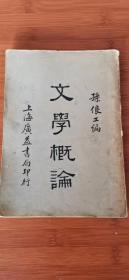 孫俍工編
文學概論
上海廣益書局印行